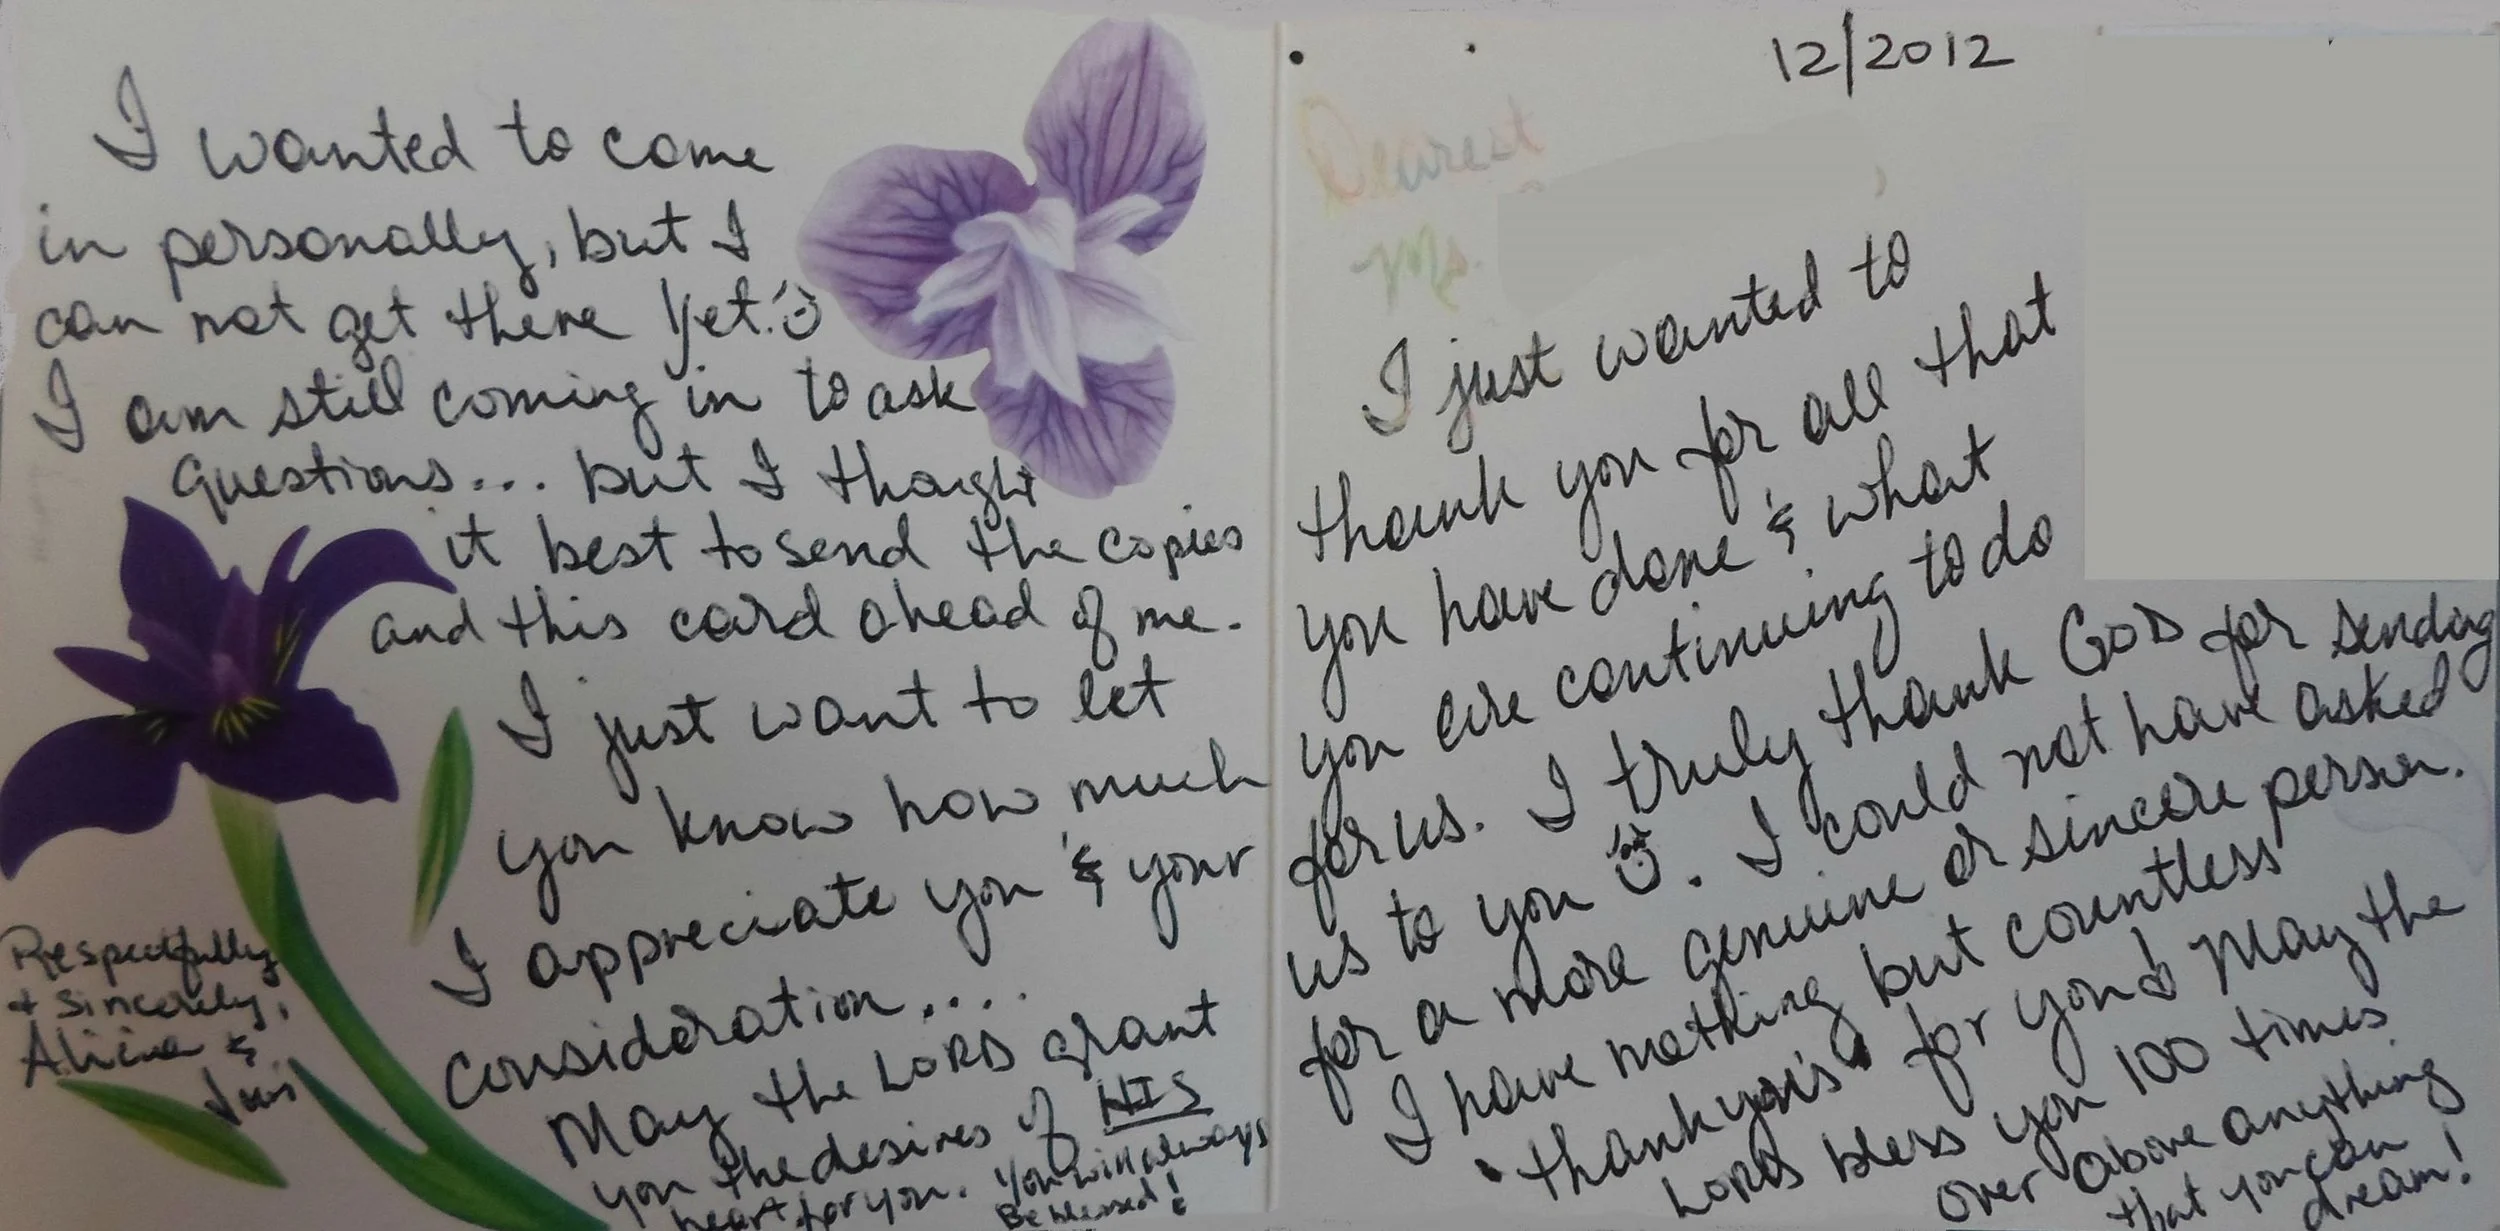 I wanted to come
in personally, but I
can not get there yet. :)
I am still coming in to ask
questions... but I thought
it best to send the copies
and this card ahead of me.
I just want to let
you know how much
I appreciate you & your
consideration....
May the LORD grant
you the desires of HIS
heart for you. You will always
Be blessed!
Respectfully
+ Sincerely,
Alicia &
12/2012
Dearest
Ms.
I just wanted to
thank you for all that
you have done & what
you are continuing to do
for us. I truly thank GOD for sending
us to you :). I could not have asked
for a more genuine or sincere person.
I have nothing but countless
"thank you's" for you! May the
LORD bless you 100 times
over above anything
that you can
dream!